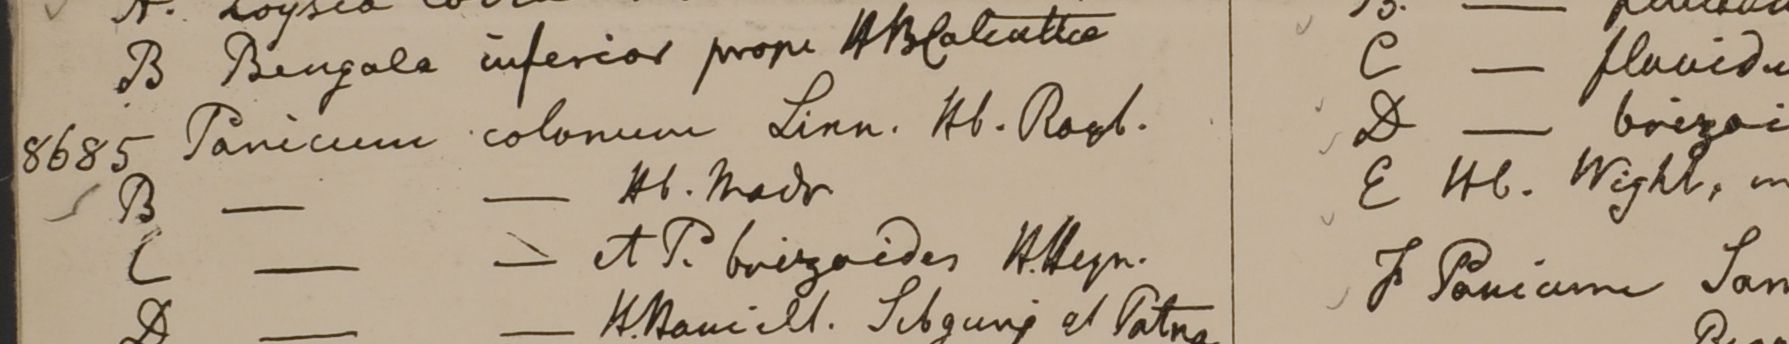 A.
B Bengala inferior prope HBCalcutta
8685 Panicum colonum Linn. Hb. Roxb.
B — — Hb. Madr
C — — et P. brizoides H.Heyn.
D — — H.Hamilt. Sibgunj et Patna
B. —
C — fluvidu
D — brizoi
E Hb. Wight, in
F Panicum San